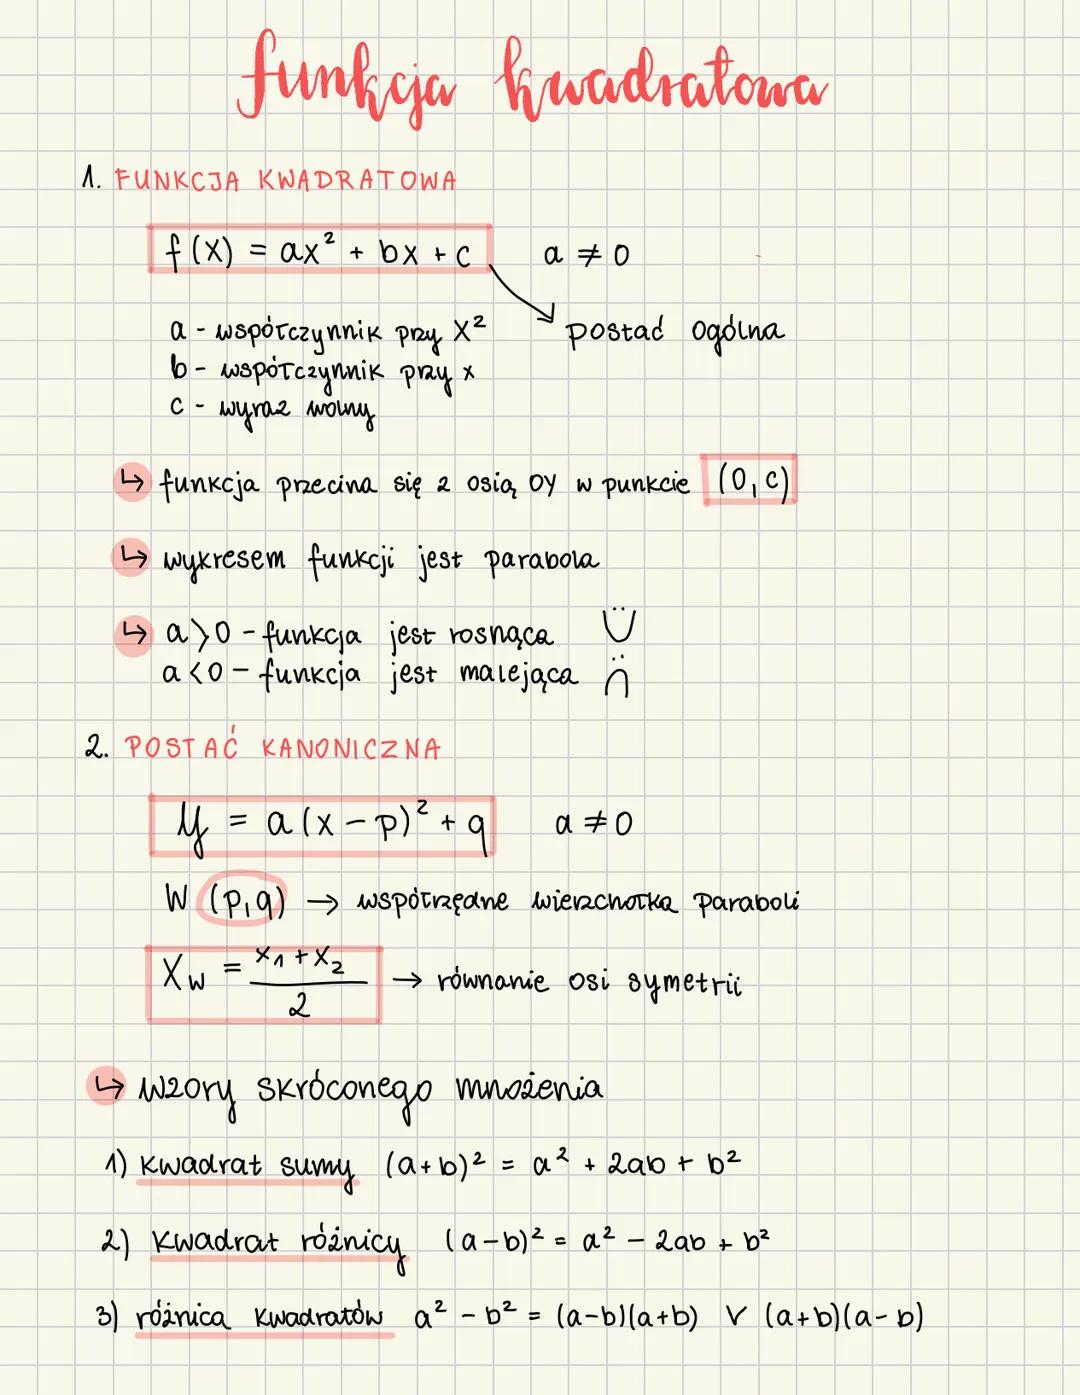 funkcja kwadratowa
1. FUNKCJA KWADRATOWA
f(x) = ax² + bx + c a ≠ 0
a - współczynnik przy x² postać ogólna
b - współczynnik przy x
c - wyraz wolny
↳ funkcja przecina się z osią OY w punkcie (0,c)
↳ wykresem funkcji jest parabola
↳ a>0 - funkcja jest rosnąca
a<0 - funkcja jest malejąca
2. POSTAĆ KANONICZNA
y = a(x-p)² + q a ≠ 0
W (p,q) → współrzędne wierzchołka paraboli
Xw = x₁+x₂/2 → równanie osi symetrii
↳ wzory skróconego mnożenia
1) kwadrat sumy (a+b)² = a² + 2ab + b²
2) kwadrat różnicy (a-b)² = a² - 2ab + b²
3) różnica kwadratów a² - b² = (a-b)(a+b) v (a+b)(a-b)